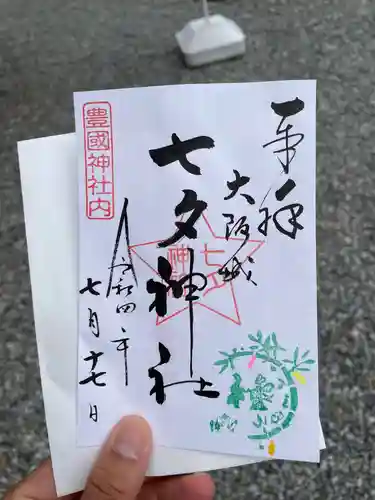 奉拝
大阪城
七夕神社
豊國神社内
令和四年
七月十七日